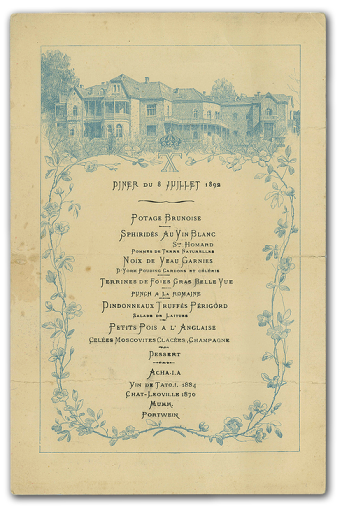 DINER DU 8 JUILLET 1892
POTAGE BRUNOISE
SPHIRIDES AU VIN BLANC
Sce HOMARD
POMMES DE TERRE NATURELLES
NOIX DE VEAU GARNIES
D'YORK POUDING CARDONS ET CÉLERIE
TERRINES DE FOIES GRAS BELLE VUE
PUNCH A LA ROMAINE
DINDONNEAUX TRUFFÉS PÉRIGORD
SALADE DE LAITUES
PETITS POIS A L'ANGLAISE
GELÉES MOSCOVITES GLACÉES, CHAMPAGNE
DESSERT
VIN DE 1884
CHAT-LEOVILLE 1870
MUMM,
PORTWEIN